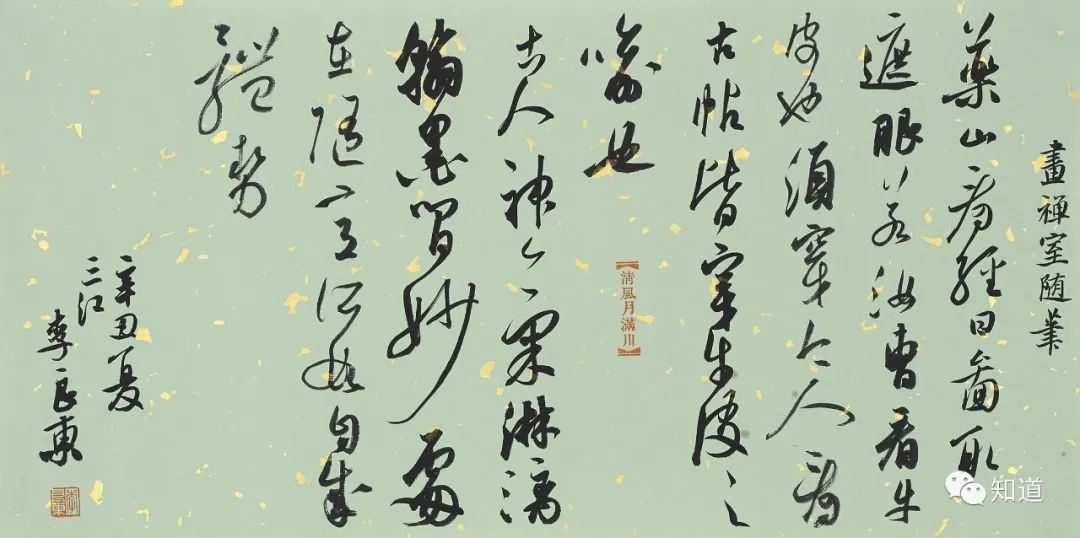 畫禪室随筆
藥山看經曰圖取
遮眼若汝曹看牛
皮也須穿今人看
古帖皆穿牛皮之
喻也
【清風月滿川】
古人神氣淋漓
翰墨間妙處
在随意所如自成
體勢
辛丑夏
三江
李良東
知道